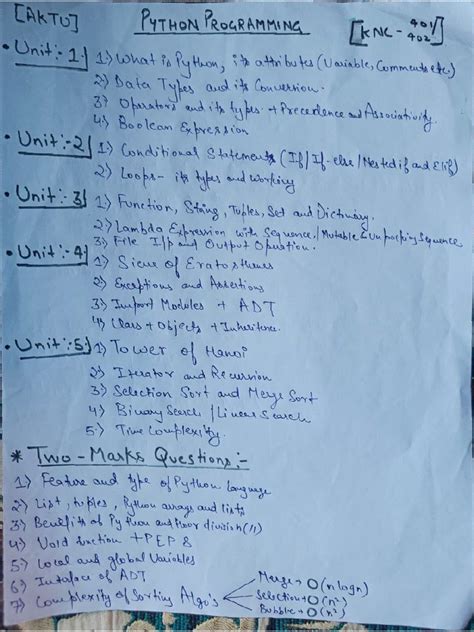 [AKTU] PYTHON PROGRAMMING [KNC - 401/402]
• Unit:-1 1) What is Python, its attributes (Variable, Comments etc.)
2) Data Types and its Conversion.
3) Operators and its types + Precedence and Associativity.
4) Boolean Expression
• Unit:-2 1) Conditional Statements (If / If-else / Nested if and Elif)
2) Loops - its types and Working
• Unit:-3 1) Function, String, Tuples, Set and Dictionary.
2) Lambda Expression with Sequence / Mutable & Unpacking Sequence
3) File I/p and Output Operation.
• Unit:-4 1) Sieve of Eratosthenes
2) Exceptions and Assertions
3) Import Modules + ADT
4) Class + Objects + Inheritence.
• Unit:-5 1) Tower of Hanoi
2) Iterator and Recursion
3) Selection Sort and Merge Sort
4) Binary Search / Linear Search
5) Time Complexity.
* Two-Marks Questions:-
1) Feature and type of Python Language
2) List, tuples, Python arrays and lists
3) Benefits of Python and floor division (//)
4) Void function + PEP 8
5) Local and global Variables
6) Interface of ADT
7) Complexity of Sorting Algo's
Merge → O(n log n)
Selection → O(n²)
Bubble → O(n²)